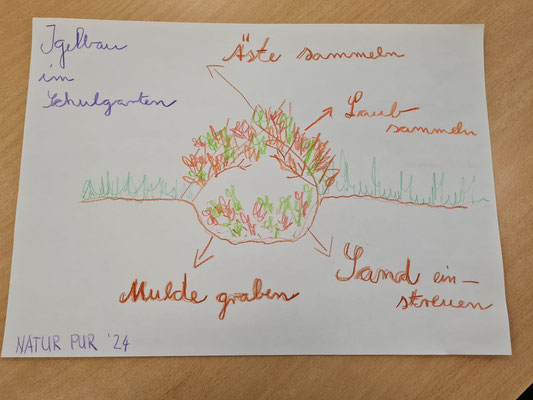 Igelbau
im
Schulgarten
Äste sammeln
Laub
sammeln
Mulde graben
Sand ein-
streuen
NATUR PUR '24